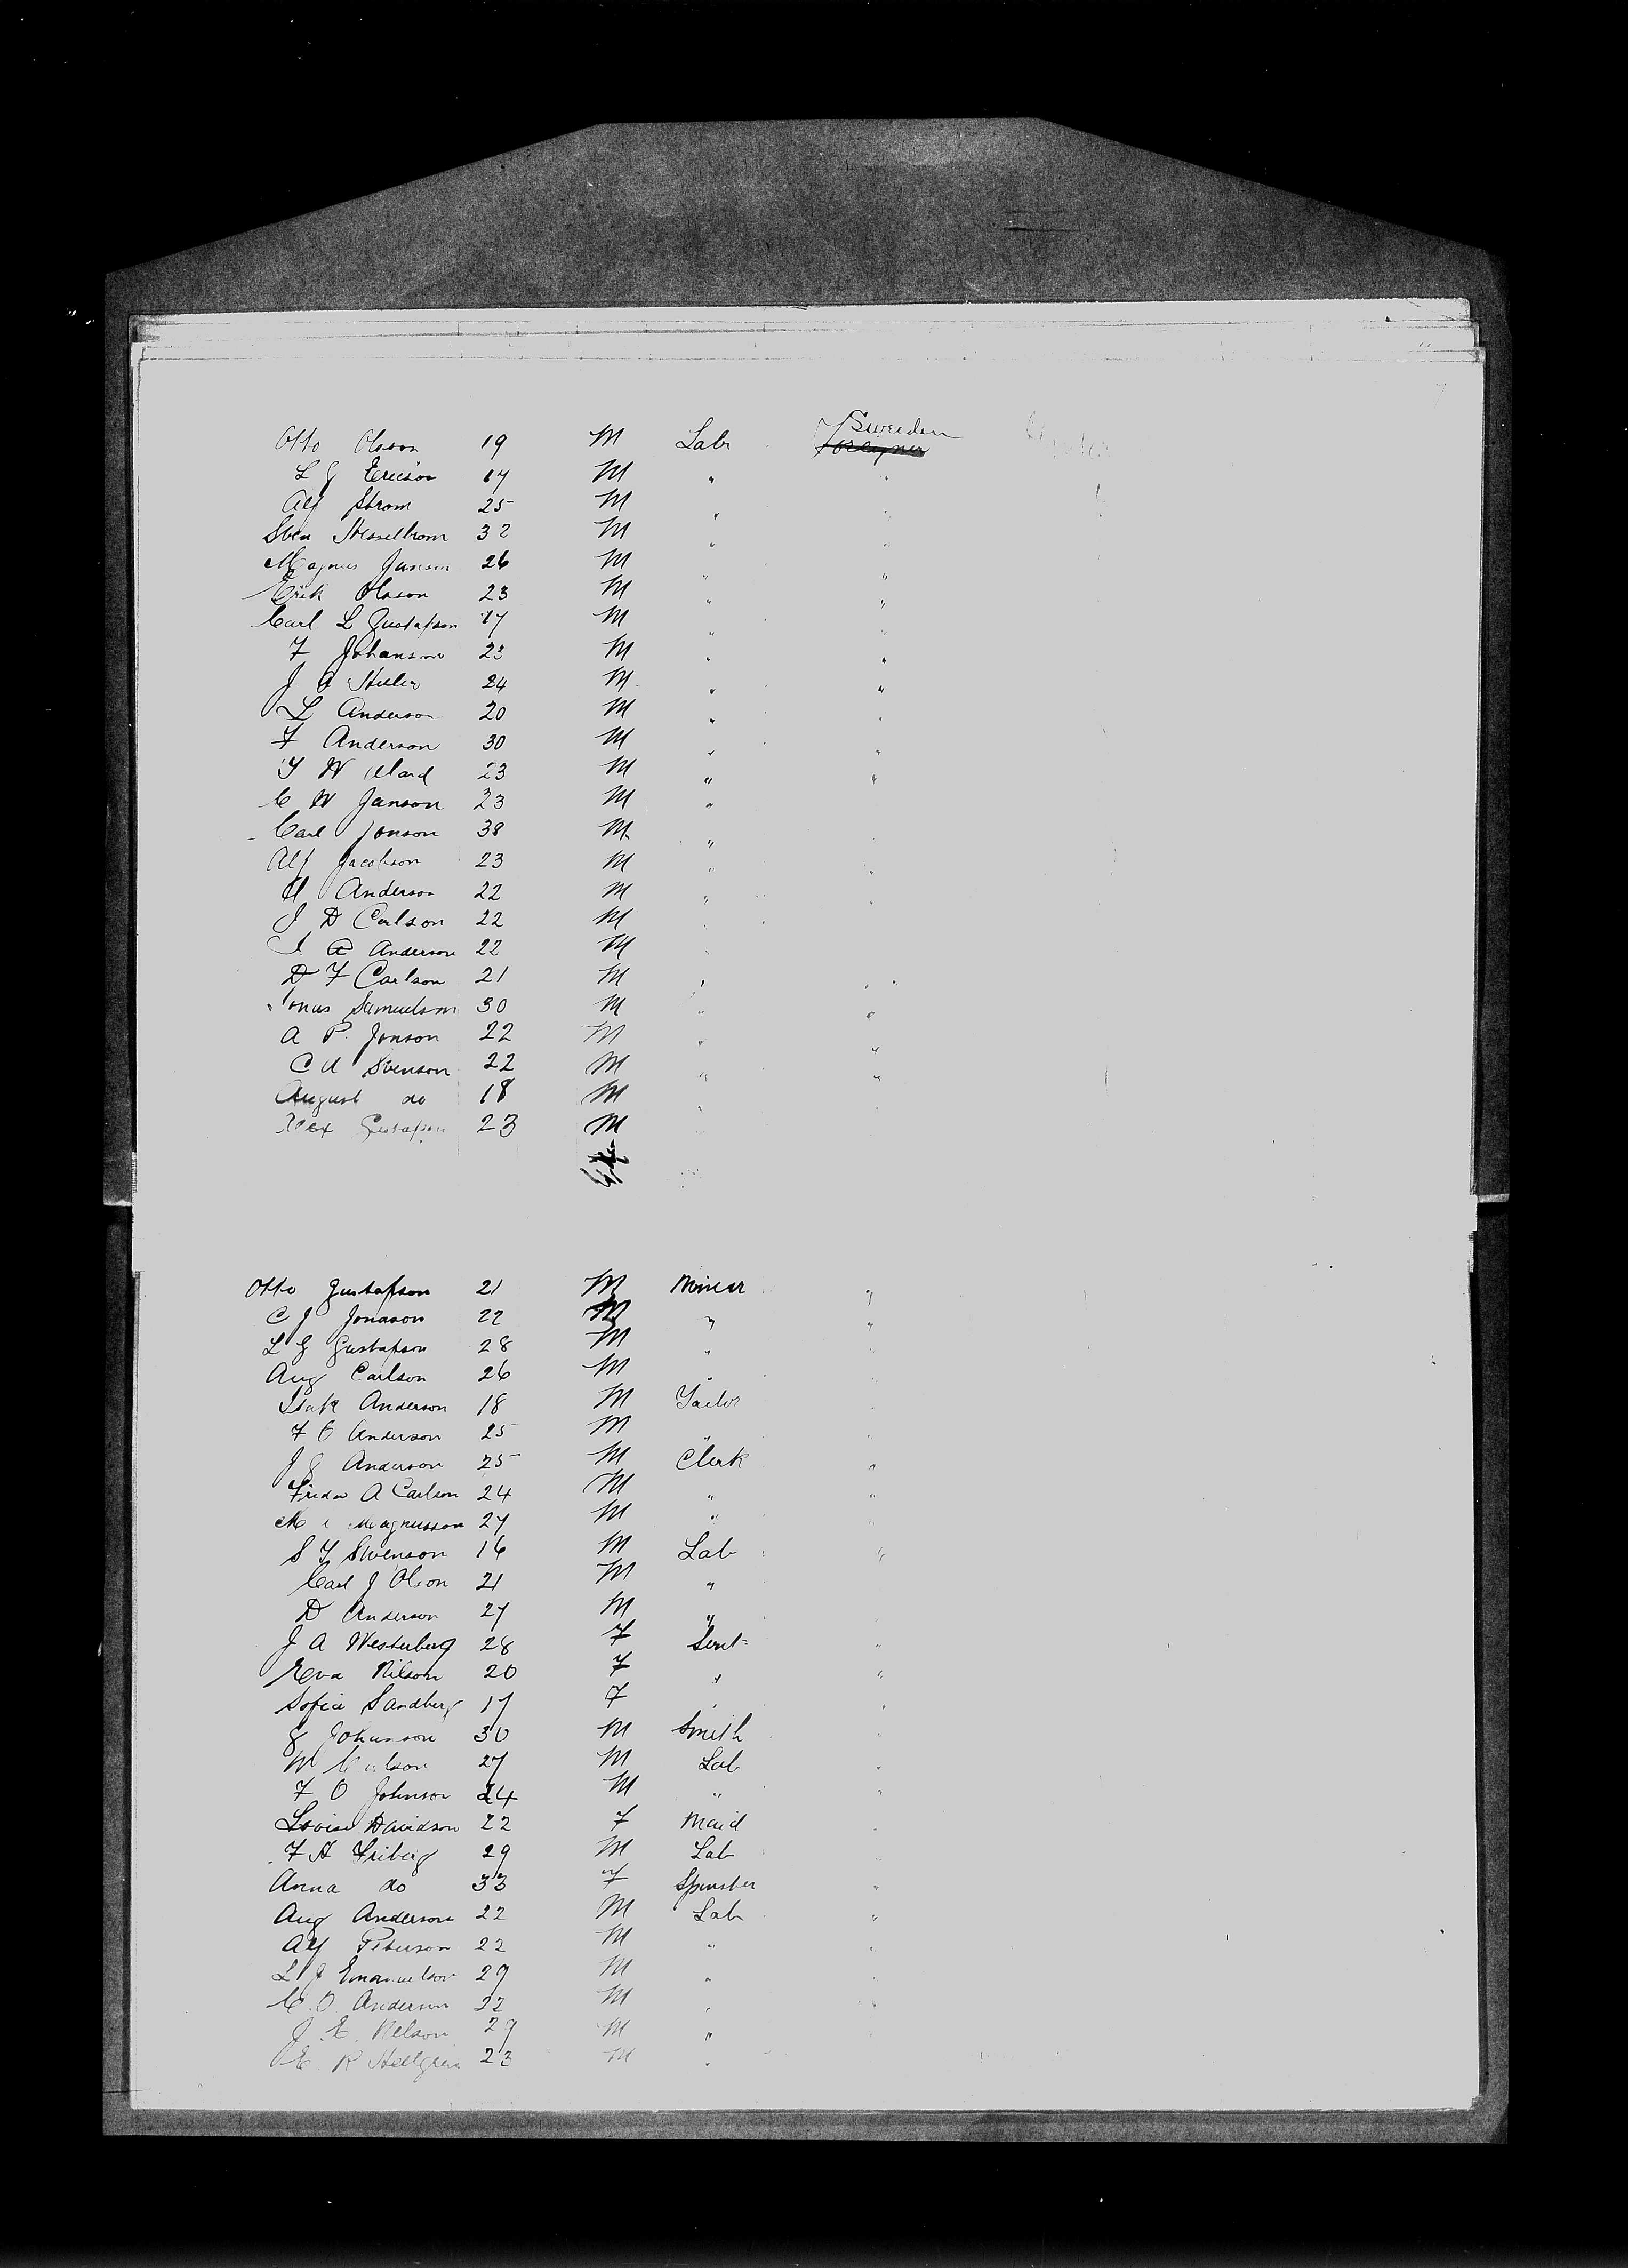 Sweden
Otto Olsson 19 M Labr
L G Ericson 17 M "
Alf Strom 25 M "
Sven 32 M "
Magnus Janson 26 M " "
Erik Olsson 23 M " "
Carl L Gustafson 17 M " "
F Johanson 23 M " "
J A 24 M " "
L Anderson 20 M " "
F Anderson 30 M " "
W 23 M " "
C W Janson 23 M "
Carl Jonson 38 M "
Alf Jacobson 23 M " "
Anderson 22 M " "
J D Carlson 22 M "
J A Anderson 22 M "
D F Carlson 21 M " "
Samuelson 30 M " "
A P. Jonson 22 M " "
C A Svenson 22 M " "
August do 18 M "
Alex Gustafson 23 M
Otto Gustafson 21 M Miner "
C J Jonason 22 M " "
L G Gustafson 28 M " "
Aug Carlson 26 M " "
Isak Anderson 18 M Tailor "
F O Anderson 25 M " "
J G Anderson 25 M Clerk "
Frida A Carlson 24 M " "
M Magnusson 27 M " "
S Swenson 16 M Lab "
Carl J Olson 21 M "
D Anderson 27 M "
J A Westerberg 28 F Servt "
Eva Nilson 20 F " "
Sofia Sandberg 17 F " "
G Johanson 30 M Smith "
W Carlson 27 M Lab "
F O Johnson 24 M " "
Lovisa Davidson 22 F Maid "
F A Friberg 29 M Lab "
Anna do 33 F Spinster "
Aug Anderson 22 M Lab "
Alf Peterson 22 M " "
L J Emanuelson 29 M " "
C. O. Anderson 22 M " "
J E. Nelson 29 M "
E R Hellgren 23 M "